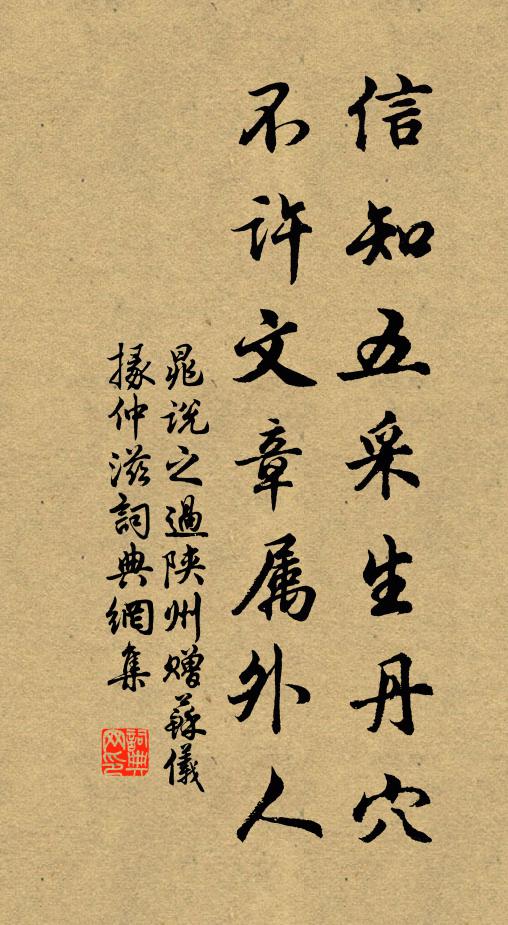 信知五采生丹穴
不许文章属外人
晁说之過陕州赠蘇儀
掾仲滋詞典網集
詞典网印